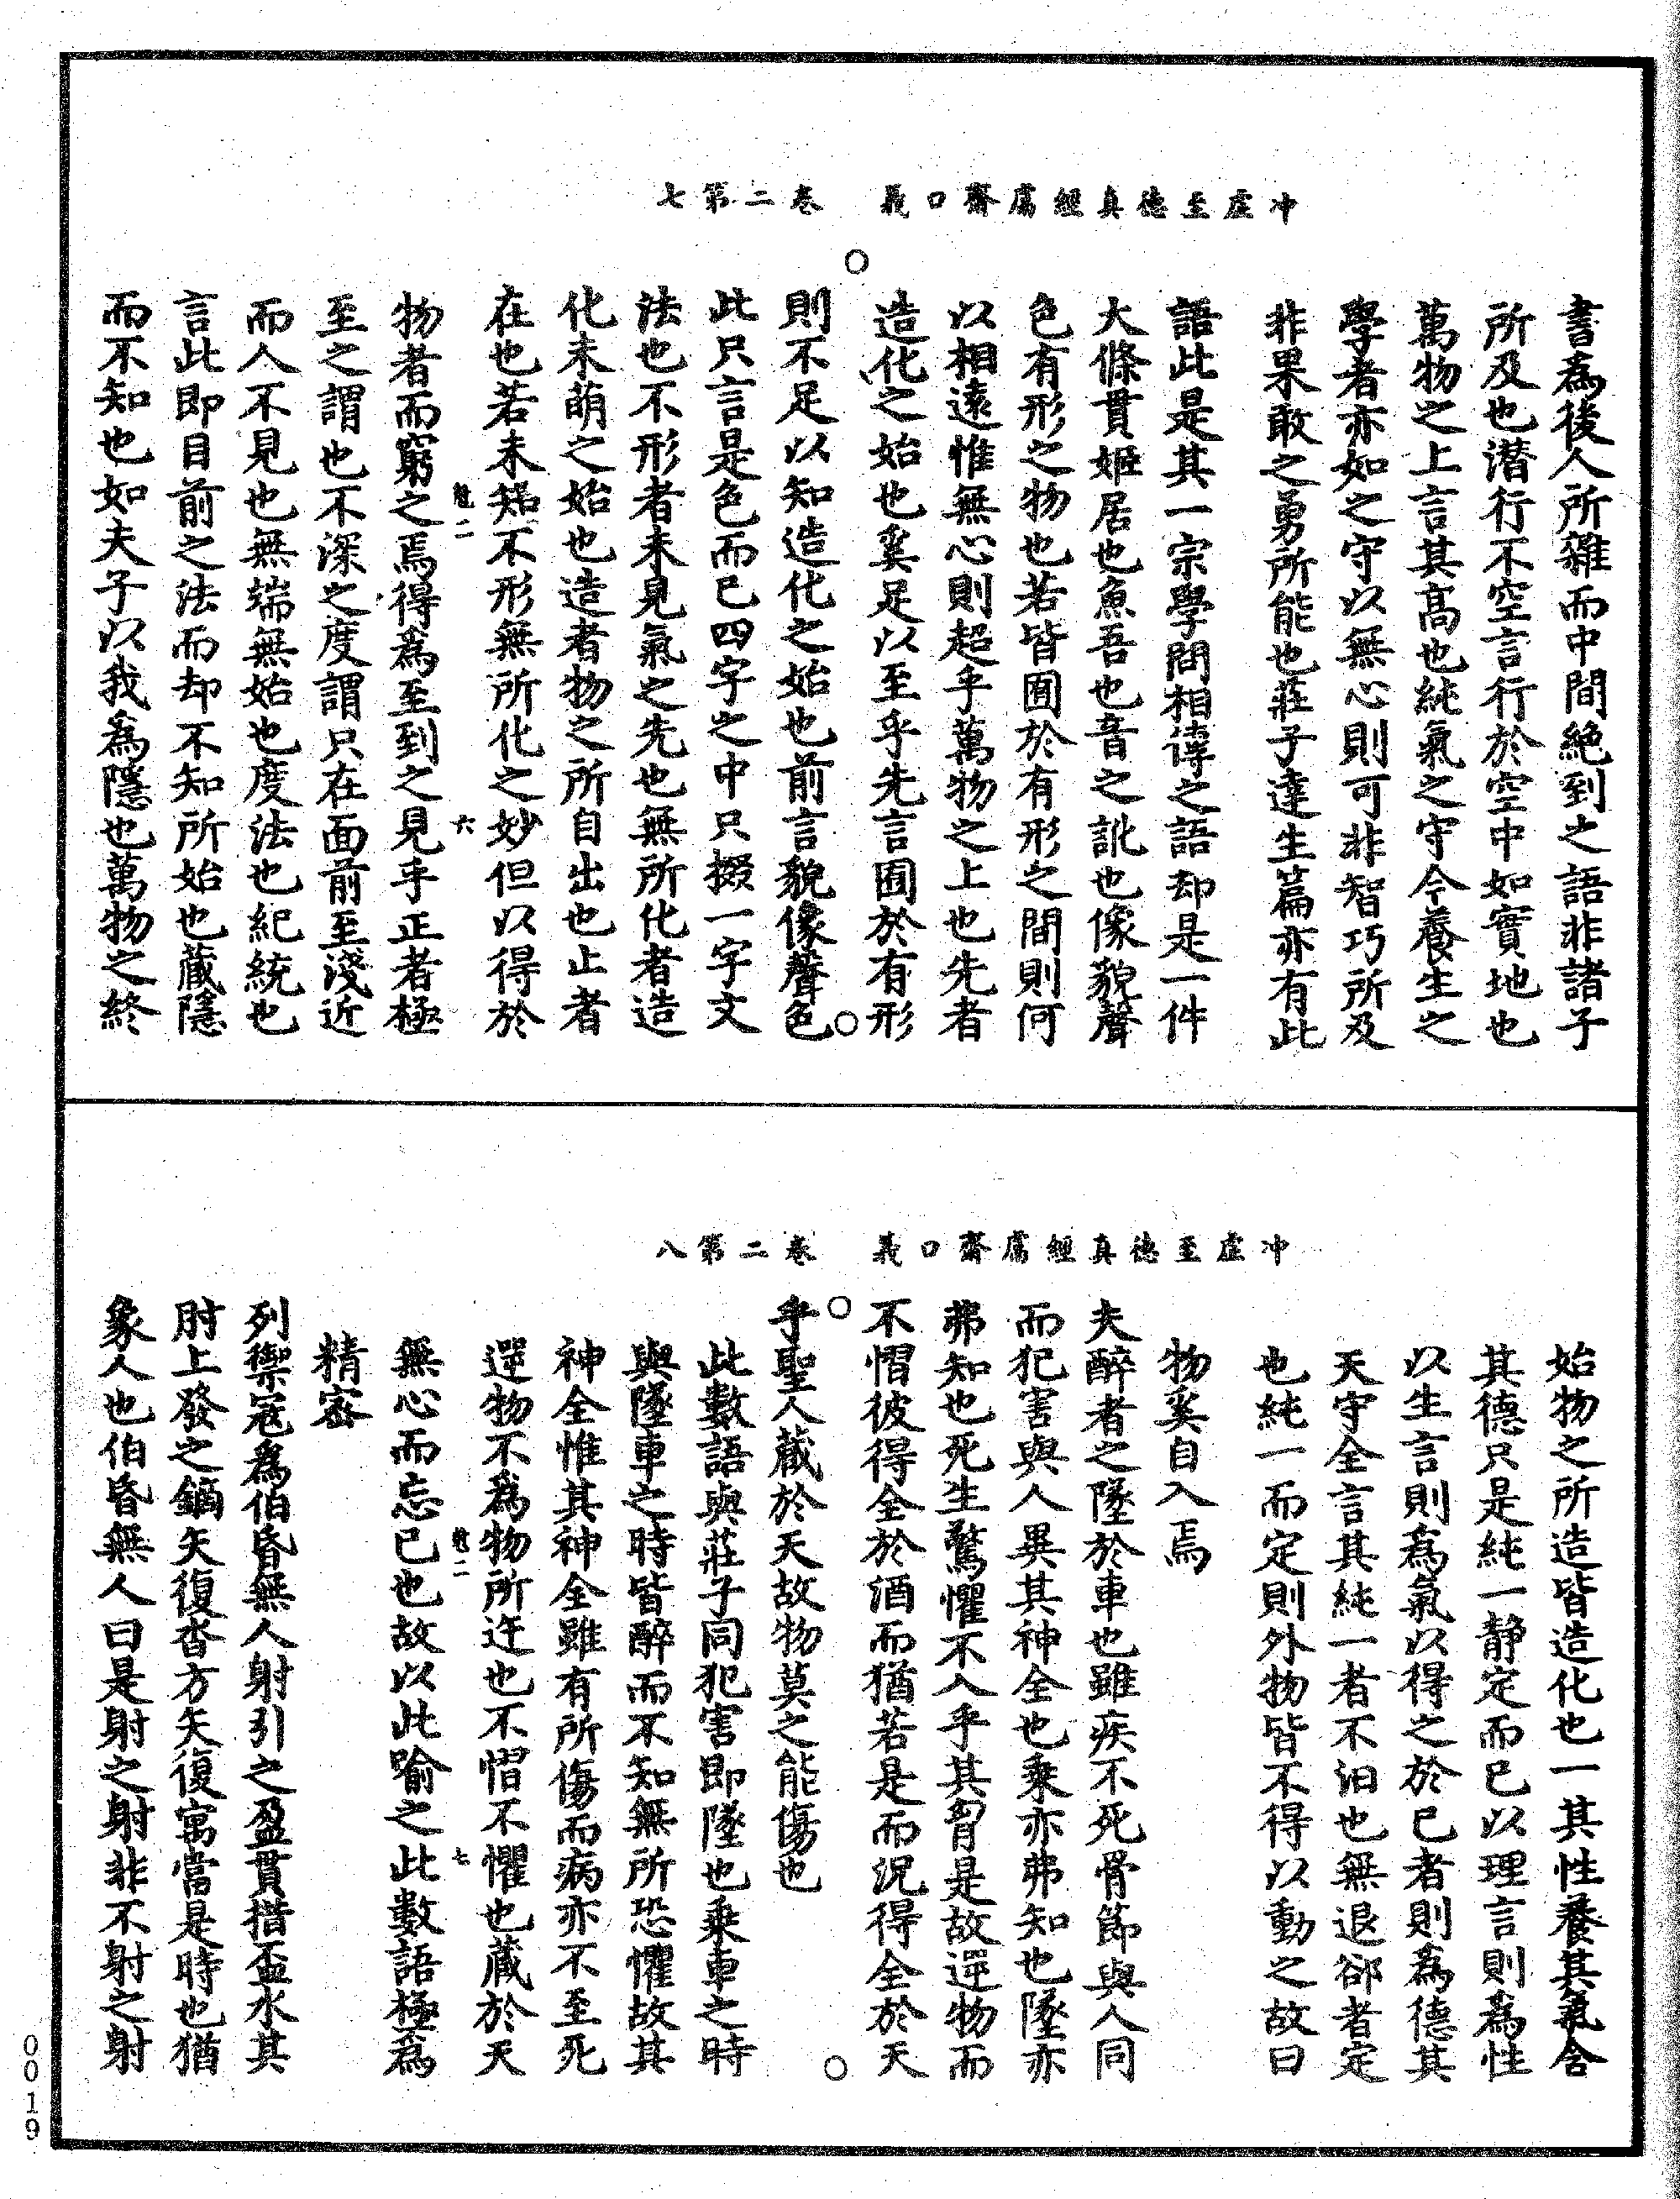 冲虛至德真經鬳齋口義　卷二第七
書為後人所雜而中間絶到之語非諸子
所及也潜行不空言行於空中如實地也
萬物之上言其高也純氣之守今養生之
學者亦如之守以無心則可非智巧所及
非果敢之勇所能也莊子達生篇亦有此
語此是其一宗學問相傳之語却是一件
大條貫姬居也魚吾也音之訛也像貌聲
色有形之物也若皆囿於有形之間則何
以相遠惟無心則超乎萬物之上也先者
造化之始也奚足以至乎先言囿於有形
則不足以知造化之始也前言貌像聲色
此只言是色而已四字之中只掇一字文
法也不形者未見氣之先也無所化者造
化未萌之始也造者物之所自出也止者
在也若未知不形無所化之妙但以得於
尅二　六
物者而窮之焉得為至到之見乎正者極
至之謂也不深之度謂只在面前至淺近
而人不見也無端無始也度法也紀統也
言此即目前之法而却不知所始也藏隱
而不知也如夫子以我為隱也萬物之終
冲虛至德真經鬳齋口義　卷二第八
始物之所造皆造化也一其性養其氣含
其德只是純一靜定而已以理言則為性
以生言則為氣以得之於已者則為德其
天守全言其純一者不汨也無退郤者定
也純一而定則外物皆不得以動之故曰
物奚自入焉
夫醉者之墜於車也雖疾不死骨節與人同
而犯害與人異其神全也乘亦弗知也墜亦
弗知也死生驚懼不入乎其胷是故遻物而
不慴彼得全於酒而猶若是而況得全於天
乎聖人藏於天故物莫之能傷也
此數語與莊子同犯害即墜也乘車之時
與墜車之時皆醉而不知無所恐懼故其
神全惟其神全雖有所傷而病亦不至死
遻物不為物所迕也不慴不懼也藏於天
尅二　七
無心而忘已也故以此喻之此數語極為
精密
列禦寇為伯昏無人射引之盈貫措盃水其
肘上發之鏑矢復沓方矢復寓當是時也猶
象人也伯昏無人曰是射之射非不射之射
0019